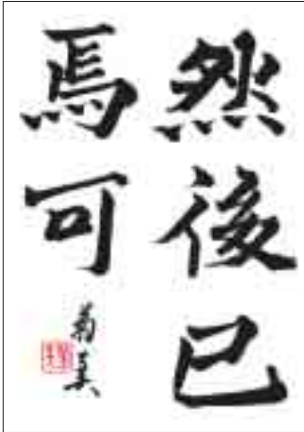 然後已
焉可
菊真